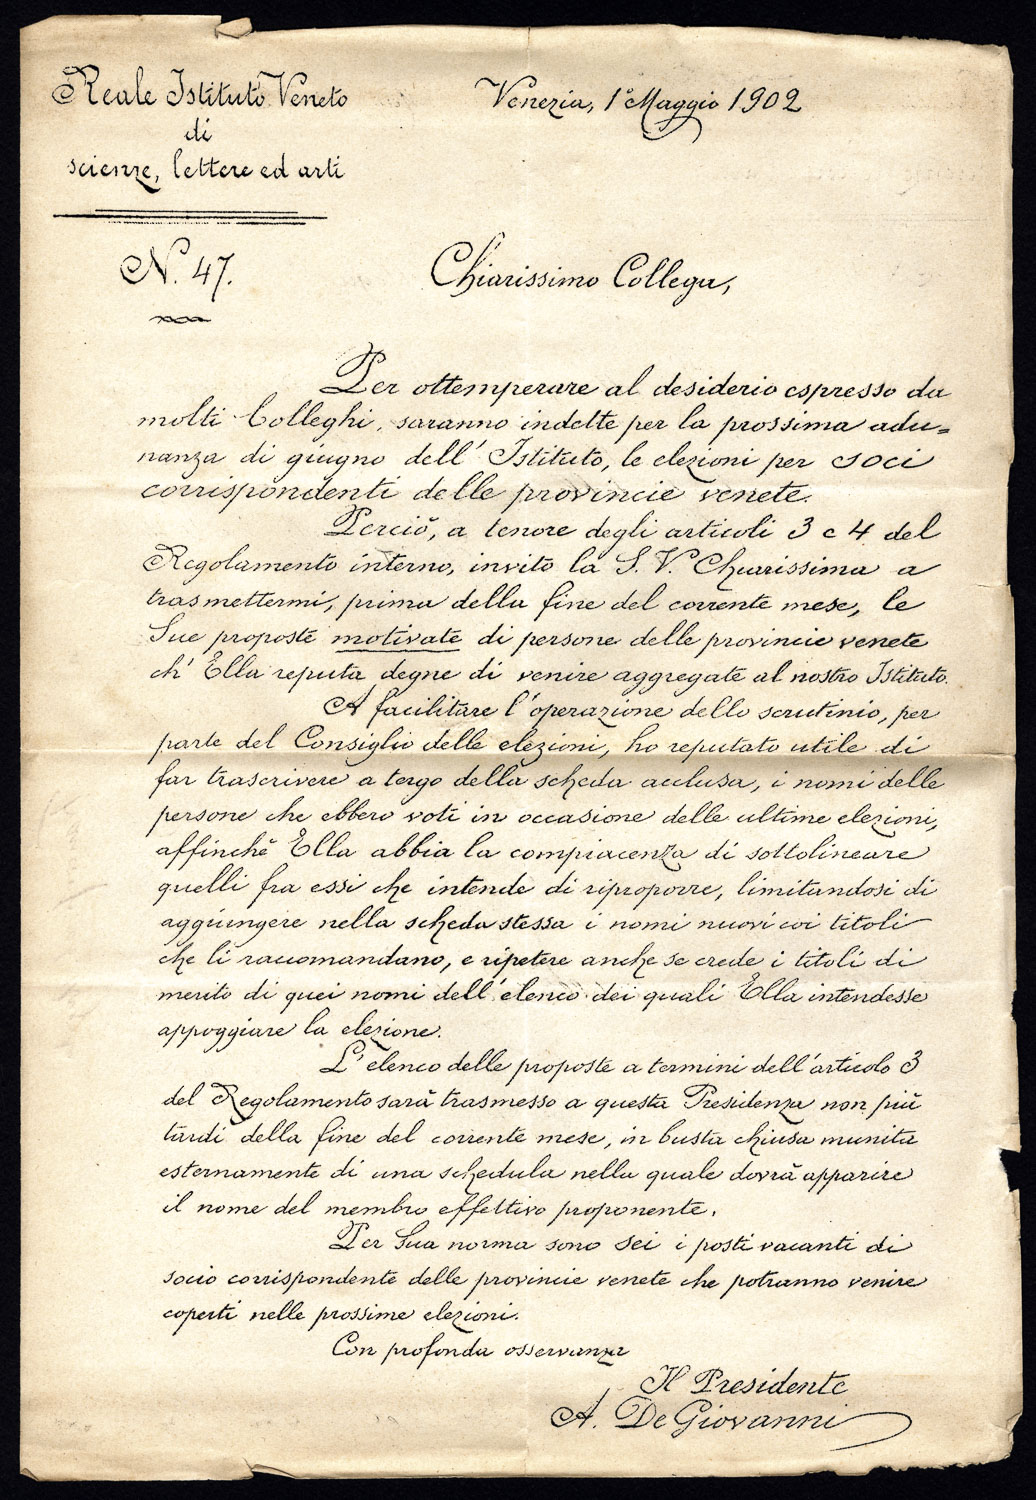 Reale Istituto Veneto
di
scienze, lettere ed arti
Venezia, 1° Maggio 1902
N. 47.
Chiarissimo Collega,
Per ottemperare al desiderio espresso da
molti Colleghi, saranno indette per la prossima adu=
nanza di giugno dell' Istituto, le elezioni per soci
corrispondenti delle provincie venete.
Perciò, a tenore degli articoli 3 e 4 del
Regolamento interno, invito la S. V. Chiarissima a
trasmettermi, prima della fine del corrente mese, le
Sue proposte motivate di persone delle provincie venete
ch' Ella reputa degne di venire aggregate al nostro Istituto.
A facilitare l'operazione dello scrutinio, per
parte del Consiglio delle elezioni, ho reputato utile di
far trascrivere a tergo della scheda acclusa, i nomi delle
persone che ebbero voti in occasione delle ultime elezioni,
affinchè Ella abbia la compiacenza di sottolineare
quelli fra essi che intende di riproporre, limitandosi di
aggiungere nella scheda stessa i nomi nuovi coi titoli
che li raccomandano, e ripetere anche se crede i titoli di
merito di quei nomi dell'elenco dei quali Ella intendesse
appoggiare la elezione.
L'elenco delle proposte a termini dell'articolo 3
del Regolamento sarà trasmesso a questa Presidenza non più
tardi della fine del corrente mese, in busta chiusa munita
esternamente di una schedula nella quale dovrà apparire
il nome del membro effettivo proponente.
Per Sua norma sono sei i posti vacanti di
socio corrispondente delle provincie venete che potranno venire
coperti nelle prossime elezioni.
Con profonda osservanza
Il Presidente
A. De Giovanni